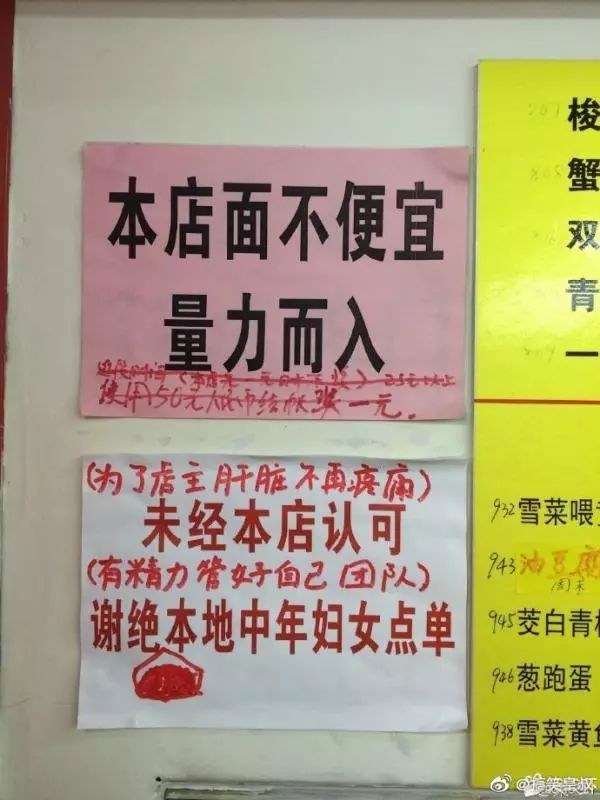 本店面不便宜
量力而入
使用50元人民币结帐 一元。
(为了店主肝脏不再疼痛)
未经本店认可
(有精力管好自己团队)
谢绝本地中年妇女点单
梭
蟹
双
青
一
932 雪菜
943 油豆腐
周末
945 茭白青椒
946 葱跑蛋
938 雪菜黄鱼
@搞笑皇杯